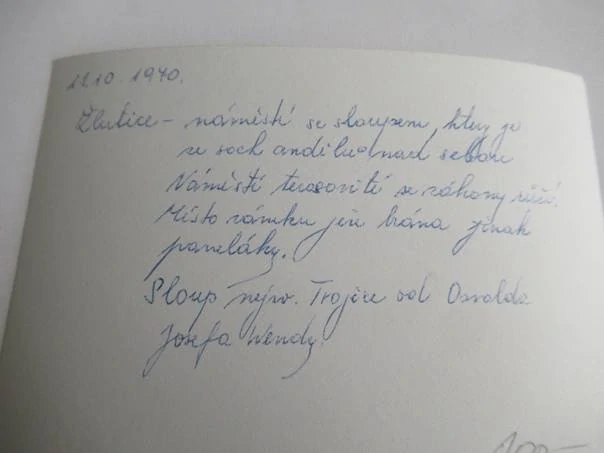 11.10.1970.
Žlutice - náměstí se sloupem, který je
ze soch andělů nad sebou
Náměstí terasovité se záhony růží.
Místo zámku jen brána jinak
paneláky.
Sloup nejsv. Trojice od Osvalda
Josefa Wendy.